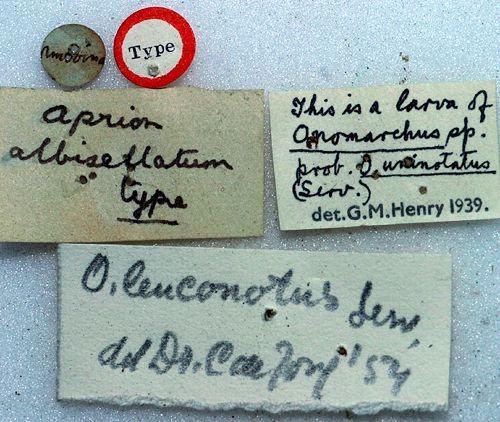 Type
Aprion
albiseflatum
type
This is a larva of
Onomarchus sp.
prob. O. uninotatus
(Serv.)
det. G.M. Henry 1939.
O. leuconotus Serv.
det Dr. C de Jong '54